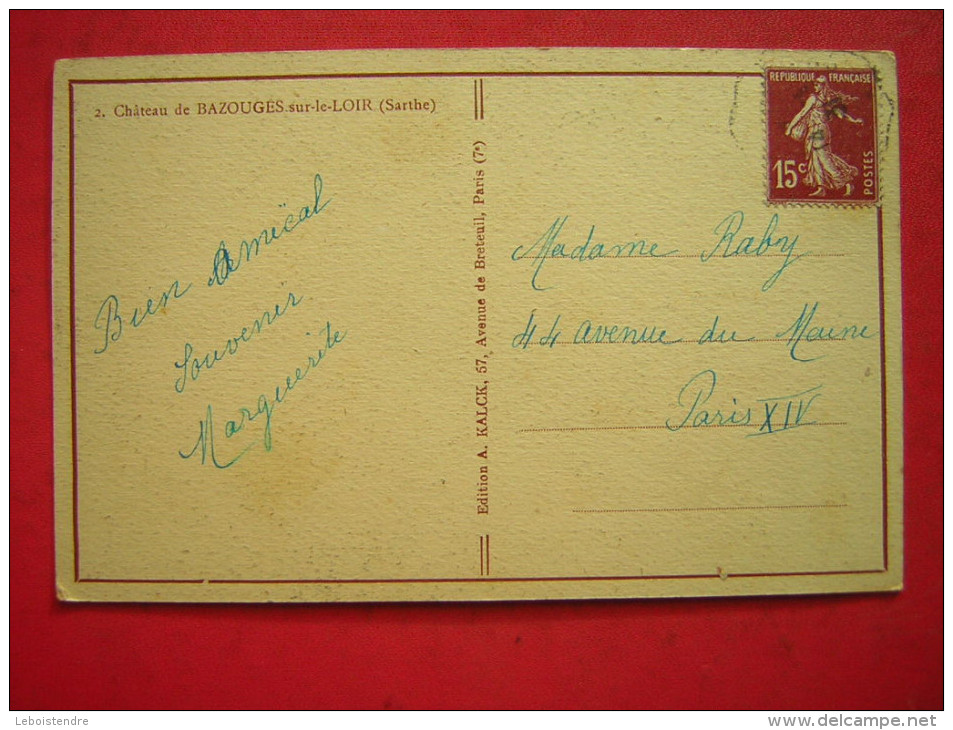 2. Château de BAZOUGES-sur-le-LOIR (Sarthe)
REPUBLIQUE FRANÇAISE
15c
POSTES
Bien Amical
Souvenir
Marguerite
Edition A. KALCK, 57, Avenue de Breteuil, Paris (7e)
Madame Raby
44 avenue du Maine
Paris XIV
Leboistendre
www.delcampe.net